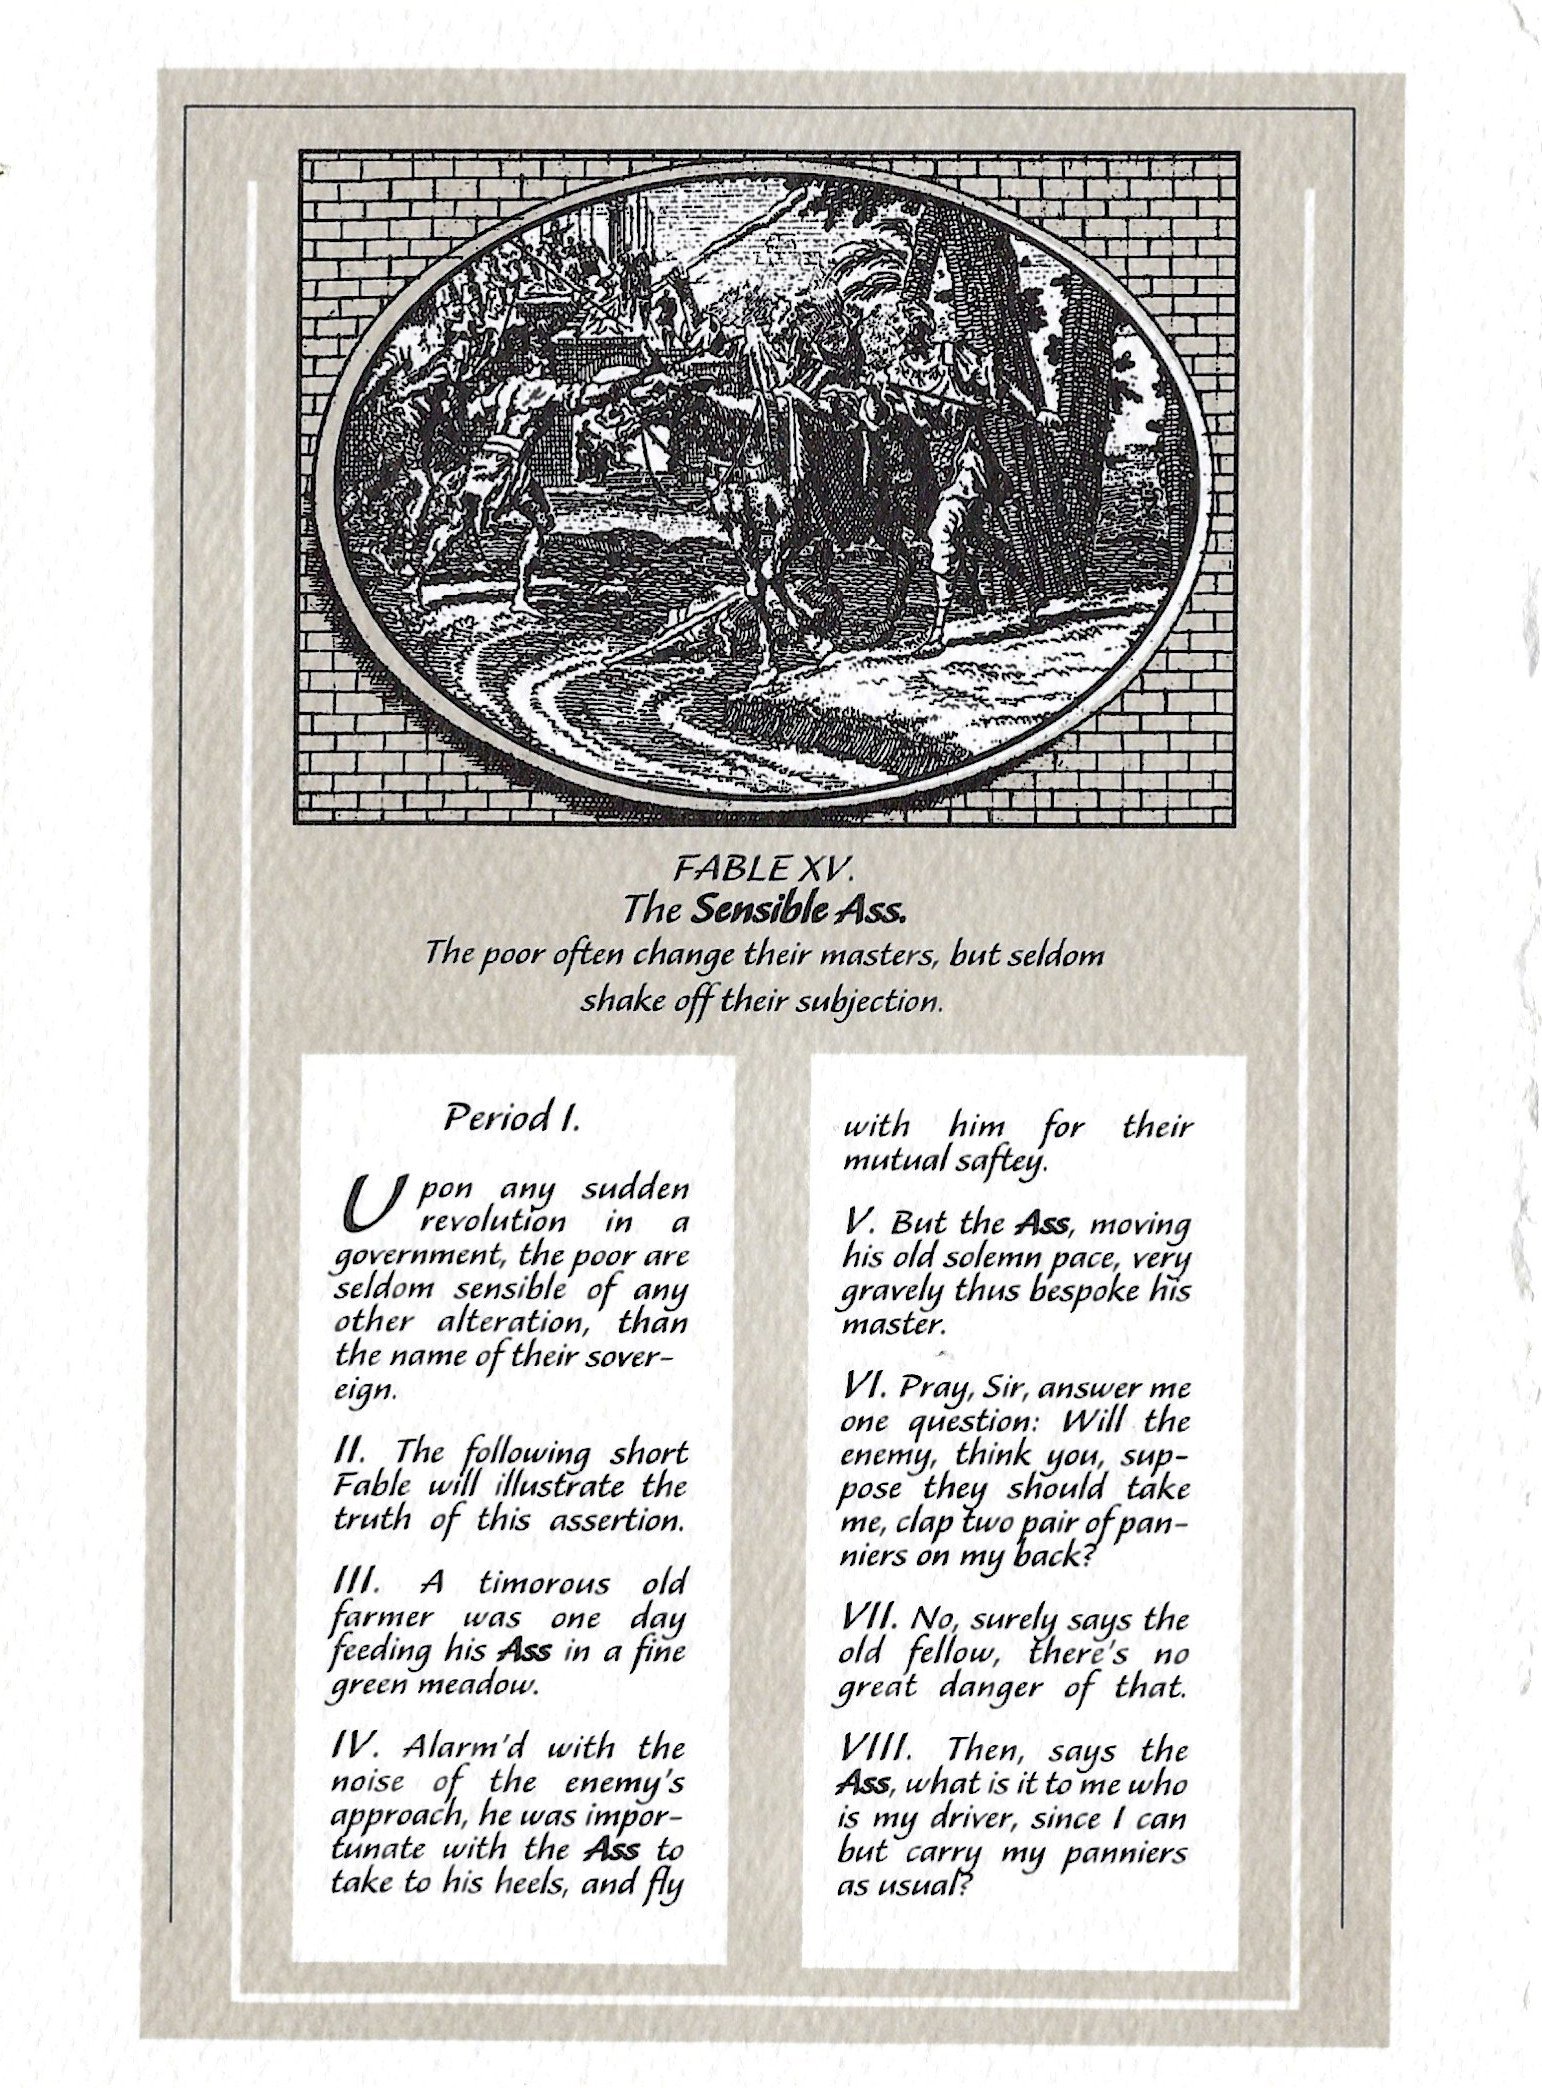 FABLE XV.
The Sensible Ass.
The poor often change their masters, but seldom
shake off their subjection.
Period I.
Upon any sudden
revolution in a
government, the poor are
seldom sensible of any
other alteration, than
the name of their sover-
eign.
II. The following short
Fable will illustrate the
truth of this assertion.
III. A timorous old
farmer was one day
feeding his Ass in a fine
green meadow.
IV. Alarm'd with the
noise of the enemy's
approach, he was impor-
tunate with the Ass to
take to his heels, and fly
with him for their
mutual saftey.
V. But the Ass, moving
his old solemn pace, very
gravely thus bespoke his
master.
VI. Pray, Sir, answer me
one question: Will the
enemy, think you, sup-
pose they should take
me, clap two pair of pan-
niers on my back?
VII. No, surely says the
old fellow, there's no
great danger of that.
VIII. Then, says the
Ass, what is it to me who
is my driver, since I can
but carry my panniers
as usual?